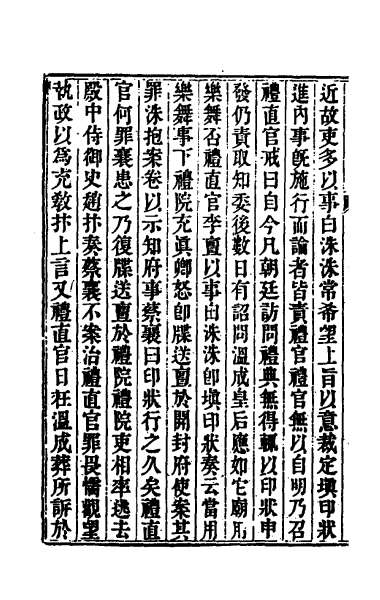 近故吏多以事白洙洙常希望上旨以意裁定填印狀
進內事旣施行而論者皆責禮官禮官無以自明乃召
禮直官戒曰自今凡朝廷訪問禮典無得輒以印狀申
發仍責取知委後數日有詔問溫成皇后應如它廟用
樂舞否禮直官李亶以事白洙洙卽填印狀奏云當用
樂舞事下禮院充眞卿怒卽牒送亶於開封府使案其
罪洙抱案卷以示知府事蔡襄曰印狀行之久矣禮直
官何罪襄患之乃復牒送亶於禮院禮院吏相率逃去
殿中侍御史趙抃奏蔡襄不案治禮直官罪畏懦觀望
執政以爲充敎抃上言又禮直官日在溫成葬所訴於